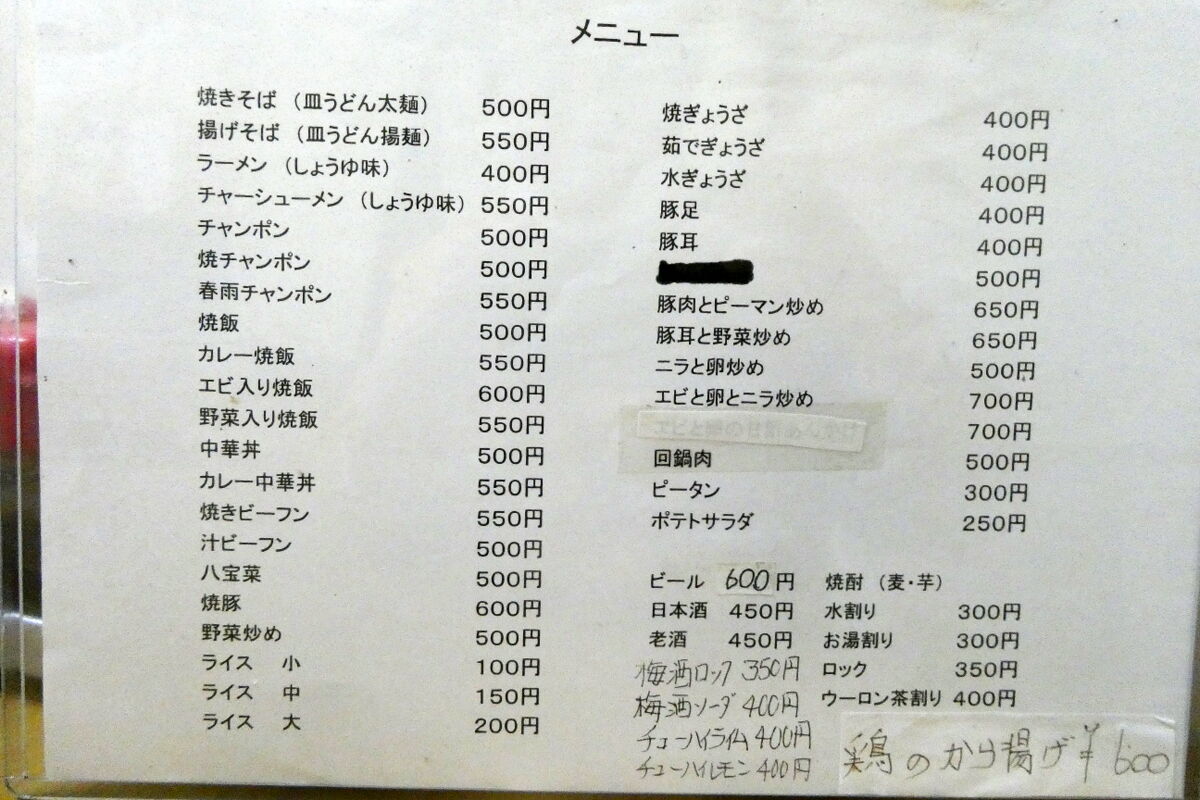 メニュー
焼きそば （皿うどん太麺） 500円
揚げそば （皿うどん揚麺） 550円
ラーメン （しょうゆ味） 400円
チャーシューメン （しょうゆ味） 550円
チャンポン 500円
焼チャンポン 500円
春雨チャンポン 550円
焼飯 500円
カレー焼飯 550円
エビ入り焼飯 600円
野菜入り焼飯 550円
中華丼 500円
カレー中華丼 550円
焼きビーフン 550円
汁ビーフン 500円
八宝菜 500円
焼豚 600円
野菜炒め 500円
ライス 小 100円
ライス 中 150円
ライス 大 200円
焼ぎょうざ 400円
茹でぎょうざ 400円
水ぎょうざ 400円
豚足 400円
豚耳 400円
500円
豚肉とピーマン炒め 650円
豚耳と野菜炒め 650円
ニラと卵炒め 500円
エビと卵とニラ炒め 700円
700円
回鍋肉 500円
ピータン 300円
ポテトサラダ 250円
ビール 600円
日本酒 450円
老酒 450円
梅酒ロック 350円
梅酒ソーダ 400円
チューハイライム 400円
チューハイレモン 400円
焼酎 （麦・芋）
水割り 300円
お湯割り 300円
ロック 350円
ウーロン茶割り 400円
鶏のから揚げ ¥600